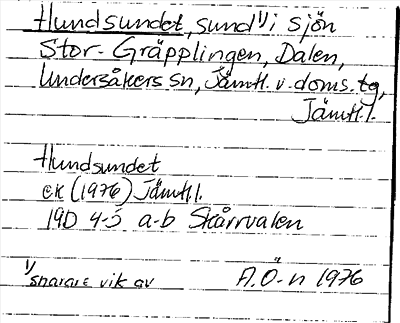 Hundsundet, sund 1) i sjön
Stor-Gräpplingen, Dalen,
Undersåkers sn, Jämtl. v. doms. tg,
Jämtl. l.
Hundsundet
ek (1976) Jämtl. l.
19D 4-5 a-b Skårvalen
1) snarare vik av
A.Ö-n 1976